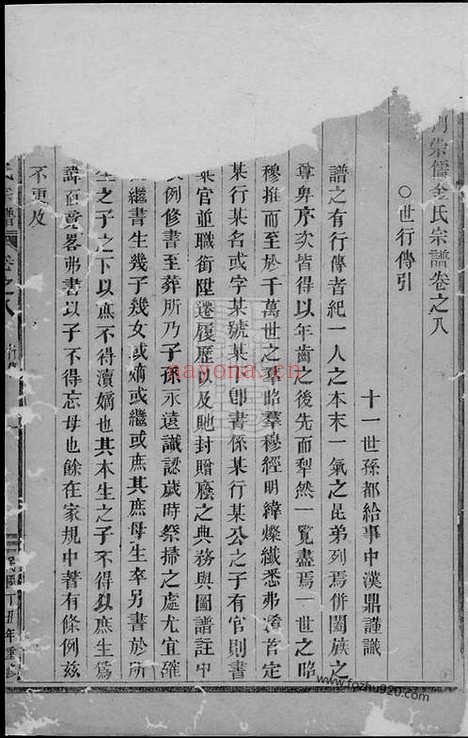 榮儒金氏宗譜卷之八
〇世行傳引
十一世孫都給事中漢鼎謹識
譜之有行傳者紀一人之本末一氣之昆弟列焉併闔族之
尊卑序次皆得以年齒之後先而犁然一覽盡焉一世之昭
穆推而至於千萬世之羣昭羣穆經明緯燦纖悉弗淆首定
某行某名或字某號某下卽書係某行某公之子有官則書
某官並職銜陞遷履歷以及馳封贈廕之典務與圖譜註中
例修書至葬所乃子孫永遠識認歲時祭掃之處尤宜確
繼書生幾子幾女或嫡或繼或庶其庶母生卒另書於所
生之子之下以庶不得瀆嫡也其本生之子不得以庶生為
諱而竟畧弗書以子不得忘母也餘在家規中著有條例玆
不更及
氏宗譜 卷之八
nayona.cn
www.fozhu920.com